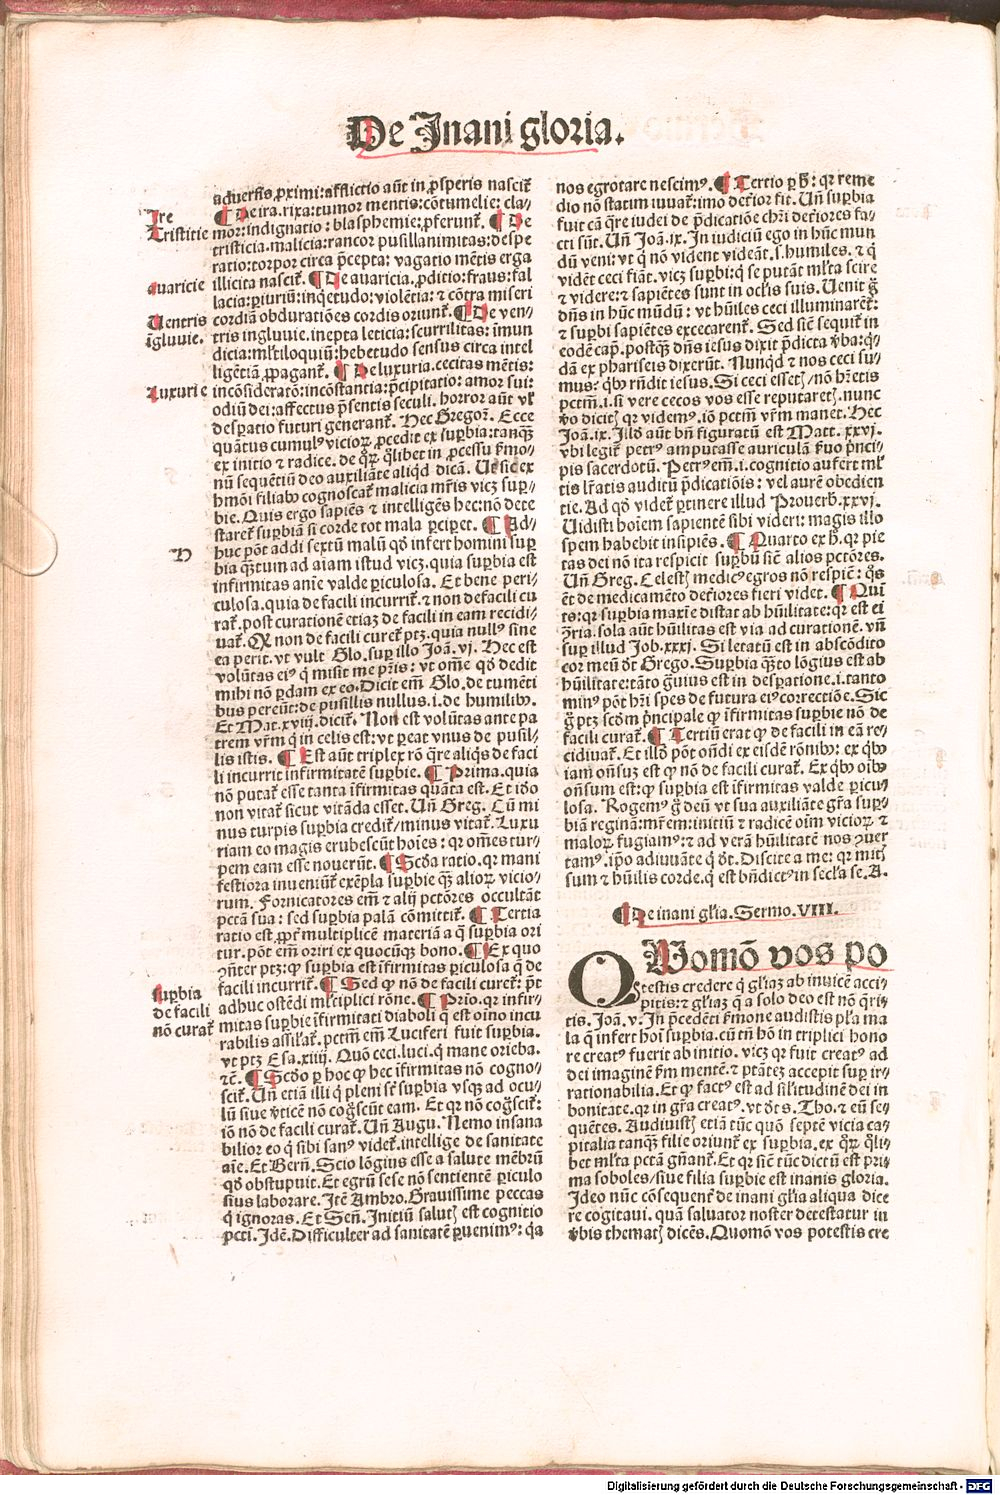 De Inani gloria.
aduersis ꝓximi: afflictio aūt in ꝓsperis nascit᷑
¶ De ira. rixa: tumor mentis: cōtumelie: cla/
mor: indignatio: blasphemie: ꝓferunt᷑. ¶ De
tristicia. malicia: rancor pusillanimitas: despe
ratio: torpor circa p̄cepta: vagatio mētis erga
illicita nascit᷑. ¶ De auaricia. ꝓditio: fraus: fal
lacia: ꝑiuriū: inq̇etudo: violētia: ⁊ cōtra miseri
cordiā obduratiōes cordis oriunt᷑. ¶ De ven/
tris ingluuie. inepta leticia: scurrilitas: īmun
dicia: ml̓tiloquiū: hebetudo sensus circa intel
ligētiā ꝓpagant᷑. ¶ De luxuria. cecitas mētis:
incōsideratō: incōstantia: p̄cipitatio: amor sui:
odiū dei: affectus p̄sentis seculi. horror aūt vl̓
desꝑatio futuri generant᷑. Hec Gregor̄. Ecce
quātus cumulꝰ vicioꝝ ꝓcedit ex suꝑbia: tanqꝫ
ex initio ⁊ radice. de q̇ꝝ q̇libet in ꝓcessu ẜmo/
nū sequētiū deo auxiliāte aliqd̓ dicā. Ut sic ex
hmōi filiabꝰ cognoscat᷑ malicia mr̄is vicꝫ suꝑ/
bie. Quis ergo sapiēs ⁊ intelligēs hec: nō dete
staret᷑ suꝑbiā si corde tot mala ꝑciꝑet. ¶ Ad/
huc pōt addi sextū malū qd̓ infert homini suꝑ
bia qꝫtum ad aīam istud vicꝫ. quia suꝑbia est
infirmitas anīe valde ꝑiculosa. Et bene peri/
culosa. quia de facili incurrit᷑. ⁊ non de facili cu
rat᷑. post curationē etiaꝫ de facili in eam recidi/
uat᷑. Qꝫ non de facili curet᷑ ptꝫ. quia nullꝰ sine
ea perit. vt vult Glo. suꝑ illo Joā. vj. Hec est
volūtas eiꝰ q̇ misit me pr̄is: vt om̄e qd̓ dedit
mihi nō ꝑdam ex eo. Dicit em̄ Glo. de tumēti
bus pereūt: de pusillis nullus. i. de humilibꝰ.
Et Mat. xviij. dicit᷑. Non est volūtas ante pa
trem vr̄m q̇ in celis est: vt pereat vnus de pusil/
lis istis. ¶ Est aūt triplex rō q̄re aliq̇s de faci
li incurrit infirmitatē suꝑbie. ¶ Prima. quia
nō putat᷑ esse tanta īfirmitas quāta est. Et iō
non vitat᷑ sicut vitāda esset. Uñ Greg. Cū mi
nus turpis suꝑbia credit᷑/ minus vitat᷑. Luxu
riam eo magis erubescūt hoīes: qꝛ om̄es tur/
pem eam esse nouerūt. ¶ Scd̓a ratio. qꝛ mani
festiora inueniūt᷑ exēpla suꝑbie qꝫ alioꝝ vicio/
rum. Fornicatores em̄ ⁊ alij pctōres occultāt
pctā sua: sed suꝑbia palā cōmittit᷑. ¶ Tertia
ratio est. ꝓpt̓ multiplicē materiā a q̇ suꝑbia ori
tur. pōt em̄ oriri ex quocūqꝫ bono. ¶ Ex quo
ꝯñter ptꝫ: ꝙ suꝑbia est īfirmitas ꝑiculosa q̇ de
facili incurrit᷑. ¶ Sed ꝙ nō de facili curet᷑: p̄t
adhuc ostēdi ml̓tiplici rōne. ¶ Prīo. qꝛ infir/
mitas suꝑbie īfirmitati diaboli q̇ est oīno incu
rabilis assil̓at᷑. pctm̄ em̄ Luciferi fuit suꝑbia.
vt ptꝫ Esa. xiiij. Quō ceci. luci. q̇ mane orieba.
⁊c̄. ¶ Scd̓o ꝑ hoc ꝙ hec īfirmitas nō cogno/
scit᷑. Uñ etiā illi q̇ pleni sē suꝑbia vsqꝫ ad ocu/
lū siue v̓ticē nō cog̓scūt eam. Et qꝛ nō cog̓scit᷑:
iō nō de facili curat᷑. Uñ Augu. Nemo insana
bilior eo q̇ sibi sanꝰ videt᷑. intellige de sanitate
aīe. Et Berñ. Scio lōgius esse a salute mēbrū
qd̓ obstupuit. Et egrū sese nō sentientē ꝑiculo
sius laborare. Itē Ambro. Grauissime peccas
q̇ ignoras. Et Señ. Initiū salutꝭ est cognitio
pcti. Idē. Difficulter ad sanitatē ꝑuenimꝰ: qa
Ire
Tristitie
auaricie
Uentris
īgluuie.
Luxurie
H
suꝑbia
de facili
nō curat᷑
nos egrotare nescimꝰ. ¶ Tertio ꝑ h̄: qꝛ reme
dio nō statim iuuat᷑: imo det̓ior fit. Uñ suꝑbia
fuit cā q̄re iudei de p̄dicatiōe chr̄i det̓iores fa/
cti sūt. Uñ Joā. ix. In iudiciū ego in hūc mun
dū veni: vt q̇ nō vident videāt. s. humiles. ⁊ q̇
vidēt ceci fiāt. vicꝫ suꝑbi: q̇ se putāt ml̓ta scire
⁊ videre: ⁊ sapiētes sunt in ocl̓is suis. Uenit g̓
dn̄s in hūc mūdū: vt hūiles ceci illuminarēt᷑:
⁊ suꝑbi sapiētes excecarent᷑. Sed sic̄ sequit᷑ in
eodē cap̄. postqꝫ dn̄s iesus dixit p̄dicta v̓ba: q̇/
dā ex phariseis dixerūt. Nunqd̓ ⁊ nos ceci su/
mus? qb̓ꝰ rn̄dit iesus. Si ceci essetꝭ/ nō hr̄etis
pctm̄. i. si vere cecos vos esse reputaretꝭ. nunc
v̓o dicitꝭ qꝛ videmꝰ. iō pctm̄ vr̄m manet. Hec
Joā. ix. Illd̓ aūt bn̄ figuratū est Matt. xxvj.
vbi legit᷑ petrꝰ amputasse auriculā ẜuo p̄nci/
pis sacerdotū. Petrꝰ em̄. i. cognitio aufert ml̓
tis lr̄atis auditū p̄dicatiōis: vel aurē obedien
tie. Ad qd̓ videt᷑ ꝑtinere illud Prouerb̓. xxvj.
Uidisti hoīem sapientē sibi videri: magis illo
spem habebit insipiēs. ¶ Quarto ex h̓. qꝛ pie
tas dei nō ita respicit suꝑbū sic̄ alios pctōres.
Uñ Greg. Celestꝭ medicꝰ egros nō respic̄: q̇s
ēt de medicamēto det̓iores fieri videt. ¶ Quī
to: qꝛ suꝑbia maxīe distat ab hūilitate: qꝛ est ei
ꝯria. sola aūt hūilitas est via ad curationē. vñ
suꝑ illud Job. xxxj. Si letatū est in abscōdito
cor meū d̓t Grego. Suꝑbia qꝫto lōgius est ab
hūilitate: tāto g̓uius est in desꝑatione. i. tanto
minꝰ pōt hr̄i spes de futura eiꝰ correctiōe. Sic
g̓ ptꝫ scd̓m p̄ncipale ꝙ īfirmitas suꝑbie nō de
facili curat᷑. ¶ Tertiū erat ꝙ de facili in eā re/
cidiuat᷑. Et illd̓ pōt ōndi ex eisdē rōnibꝰ: ex qb̓ꝰ
iam ōnsuꝫ est ꝙ nō de facili curat᷑. Ex qb̓ꝰ oīb̓ꝰ
ōnsum est: ꝙ suꝑbia est īfirmitas valde ꝑicu/
losa. Rogemꝰ g̓ deū vt sua auxiliāte gr̄a suꝑ/
biā reginā: mr̄em: initiū ⁊ radicē oīm vicioꝝ ⁊
maloꝝ fugiamꝰ: ⁊ ad verā hūilitatē nos ꝯuer
tamꝰ. ip̄o adiuuāte q̇ d̓t. Discite a me: qꝛ mitꝭ
sum ⁊ hūilis corde. q̇ est bn̄dictꝰ in secl̓a se. A.
¶ De inani gl̓ia. Sermo. VIII.
QUomō vos po
testis credere q̇ gl̓iaꝫ ab inuicē acci/
pitis: ⁊ gl̓iaꝫ q̄ a solo deo est nō q̄ri/
tis. Joā. v. In p̄cedēti ẜmone audistis pl̓a ma
la q̄ infert hoī suꝑbia. cū tn̄ hō in triplici hono
re creatꝰ fuerit ab initio. vicꝫ qꝛ fuit creatꝰ ad
dei imaginē ẜm mentē. ⁊ ptāteꝫ accepit suꝑ ir/
rationabilia. Et ꝙ factꝰ est ad sil̓itudinē dei in
bonitate. qꝛ in gr̄a creatꝰ. vt d̓t s. Tho. ⁊ eū se/
quētes. Audiuistꝭ etiā tūc quō septē vicia ca/
pitalia tanqꝫ filie oriunt᷑ ex suꝑbia. ex q̇ꝝ q̇li/
bet ml̓ta pctā gn̄ant᷑. Et qꝛ sic̄ tūc dictū est pri
ma soboles/ siue filia suꝑbie est inanis gloria.
Ideo nūc cōsequent᷑ de inani gl̓ia aliqua dice
re cogitaui. quā saluator noster detestatur in
v̓bis thematꝭ dicēs. Quomō vos potestis cre
Digitalisierung gefördert durch die Deutsche Forschungsgemeinschaft - DFG